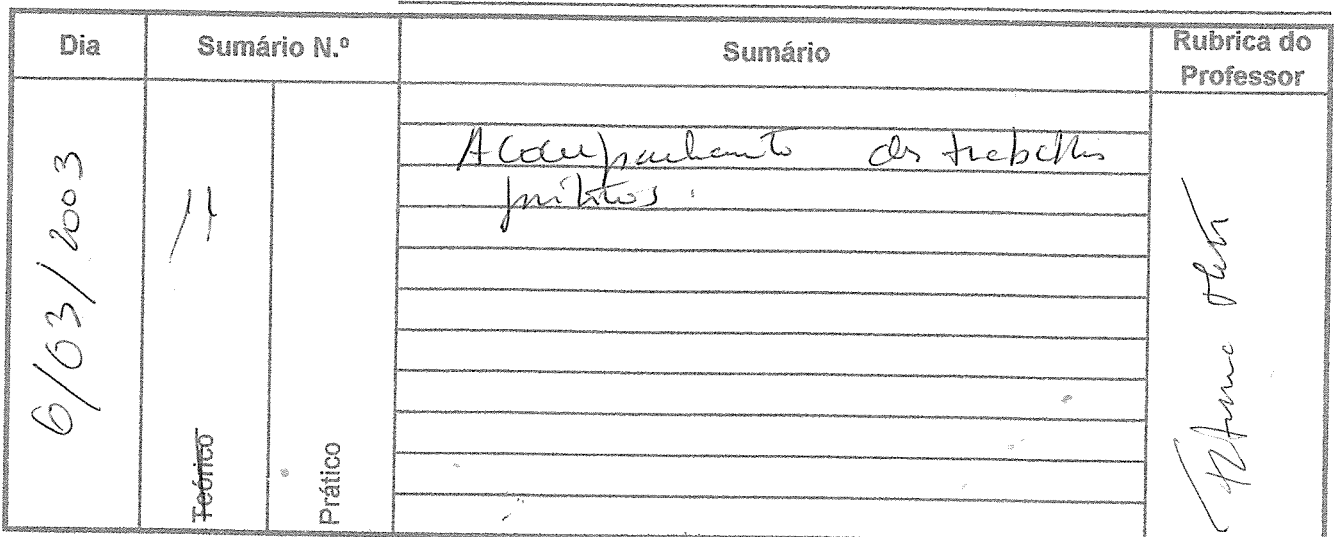 Dia
Sumário N.º
Sumário
Rubrica do
Professor
6/03/2003
11
Teórico
Prático
Acompanhamento dos trabalhos
práticos.